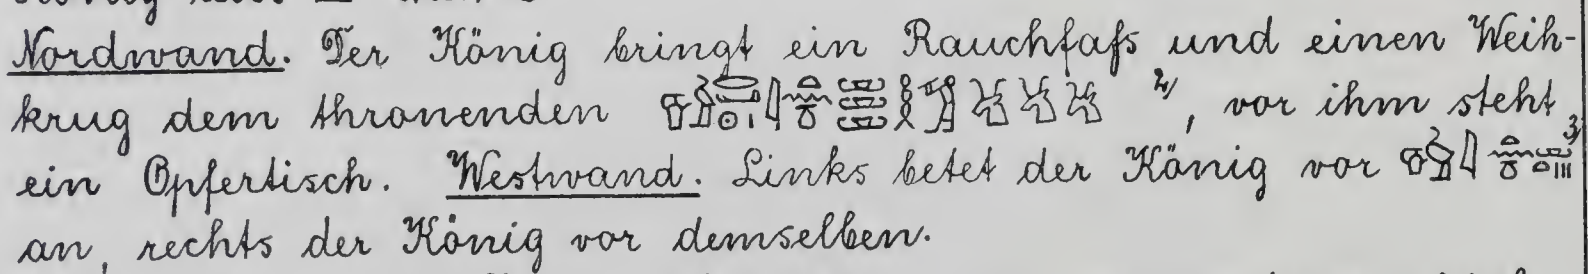 Nordwand. Der König bringt ein Rauchfaſs und einen Weih-
krug dem thronenden 2), vor ihm steht
ein Opfertisch. Westwand. Links betet der König vor 3)
an, rechts der König vor demselben.